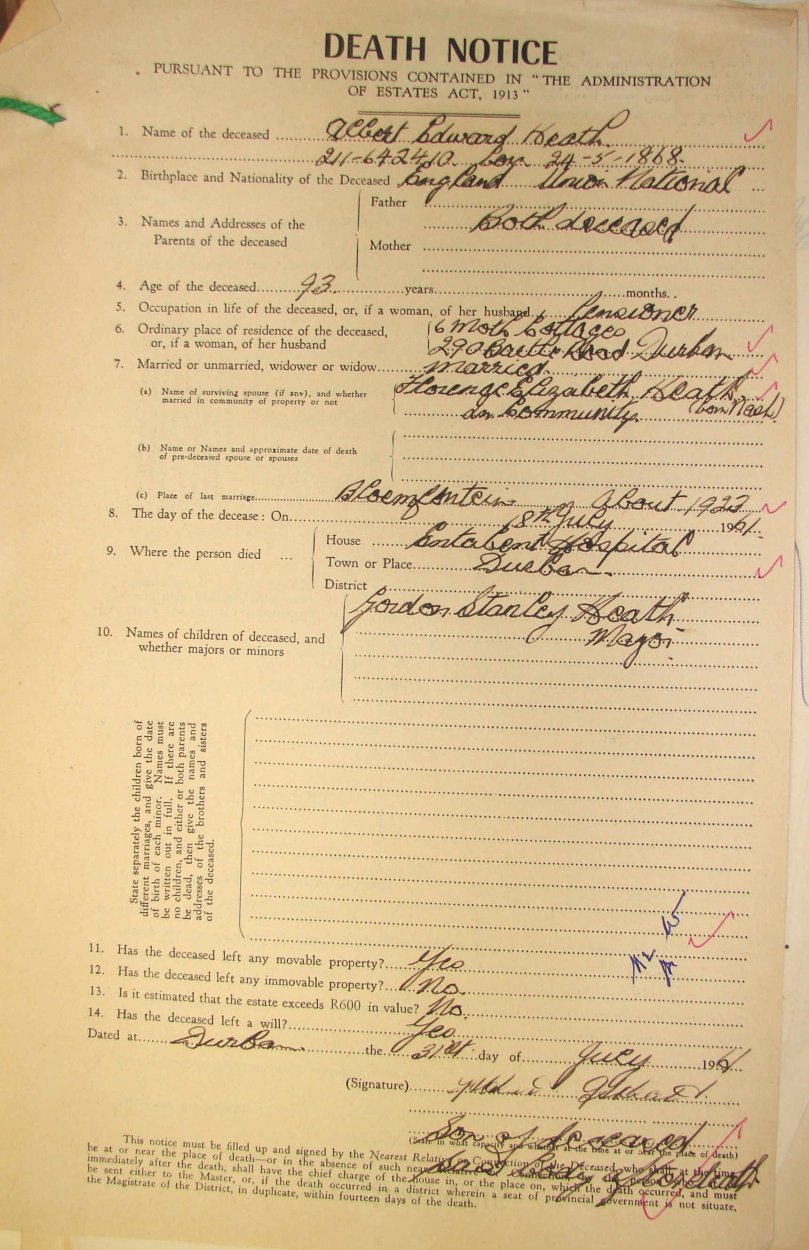 DEATH NOTICE
PURSUANT TO THE PROVISIONS CONTAINED IN "THE ADMINISTRATION
OF ESTATES ACT, 1913"
1. Name of the deceased Albert Edward Heath
211-642410 born 24-5-1868.
2. Birthplace and Nationality of the Deceased England Union National
3. Names and Addresses of the Parents of the deceased
Father
Both deceased
Mother
4. Age of the deceased 93 years months.
5. Occupation in life of the deceased, or, if a woman, of her husband Pensioner
6. Ordinary place of residence of the deceased, 6 Moth Cottages
or, if a woman, of her husband 290 Road Durban
7. Married or unmarried, widower or widow married.
(a) Name of surviving spouse (if any), and whether Florence Elizabeth Heath
married in community of property or not in Community. (born Nash)
(b) Name or Names and approximate date of death
of pre-deceased spouse or spouses
(c) Place of last marriage Bloemfontein about 1922
8. The day of the decease: On 8th July 1961.
9. Where the person died ...
House Entabeni Hospital
Town or Place Durban.
District
10. Names of children of deceased, and
whether majors or minors
Gordon Stanley Heath
Major
State separately the children born of
different marriages, and give the date
of birth of each minor. Names must
be written out in full. If there are
no children, and either or both parents
be dead, then give the names and
addresses of the brothers and sisters
of the deceased.
11. Has the deceased left any movable property? Yes
12. Has the deceased left any immovable property? No.
13. Is it estimated that the estate exceeds R600 in value? No.
14. Has the deceased left a will? Yes
Dated at Durban the 31st day of July 1961
(Signature)
Son of deceased
(State in what capacity and whether at the time at or near the place of death)
This notice must be filled up and signed by the Nearest Relative or Connection of the Deceased who shall at the time
be at or near the place of death—or in the absence of such near Relative or Connection by the person who, at or
immediately after the death, shall have the chief charge of the house in, or the place on, which the death occurred, and must
be sent either to the Master, or, if the death occurred in a district wherein a seat of provincial government is not situate,
the Magistrate of the District, in duplicate, within fourteen days of the death.